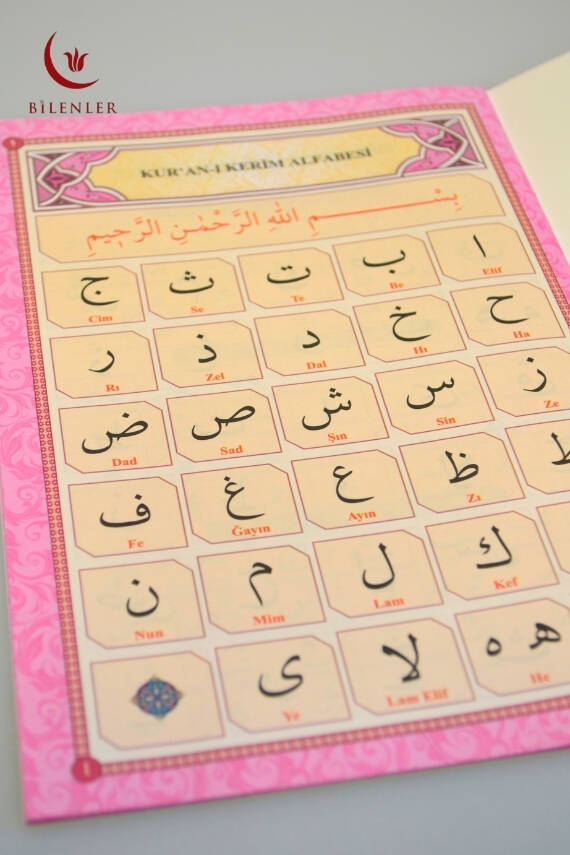 BİLENLER
KUR'AN-I KERİM ALFABESİ
بِسْــــــمِ اللهِ الرَّحْمٰنِ الرَّحٖيمِ
ا ب ت ث ج
Elif Be Te Se Cim
ح خ د ذ ر
Ha Hı Dal Zel Rı
ز س ش ص ض
Ze Sin Şın Sad Dad
ظ ع غ ف
Zı Ayın Ğayın Fe
ك ل م ن
Kef Lam Mim Nun
ه ه لا ى
He Lam Elif Ye